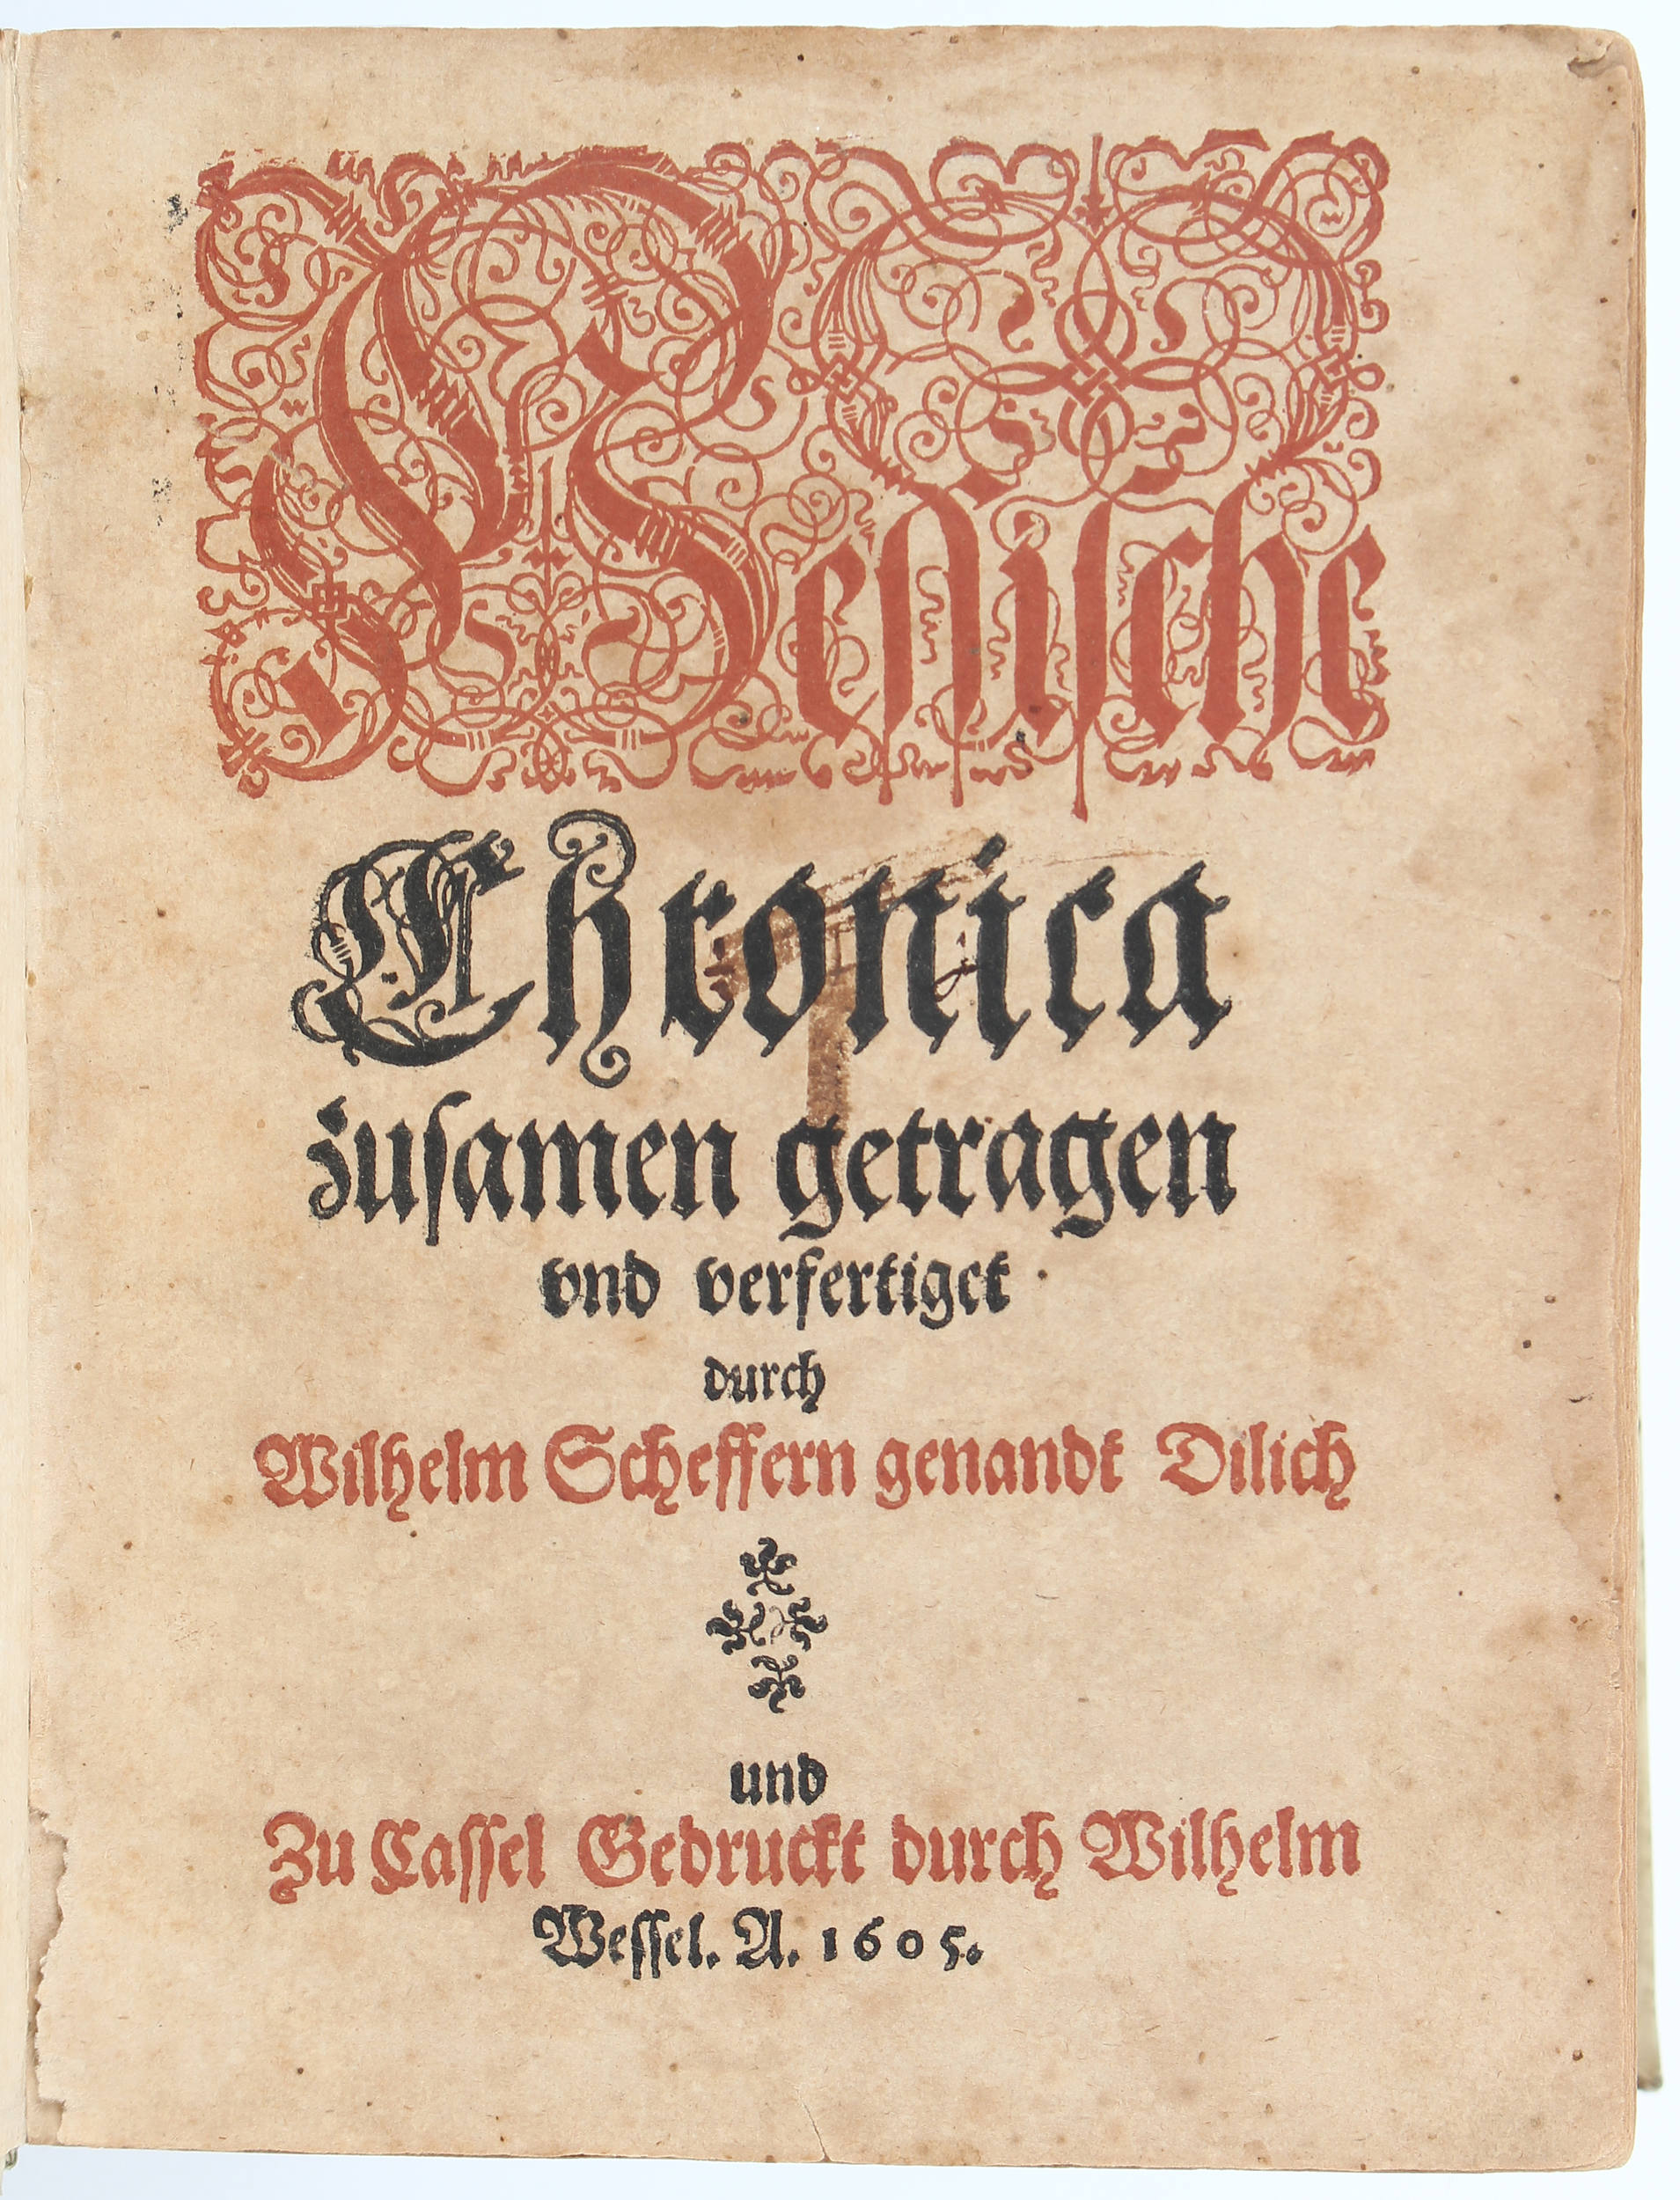 Hessische
Chronica
zusamen getragen
vnd verfertiget
durch
Wilhelm Scheffern genandt Dilich
und
Zu Cassel Gedruckt durch Wilhelm
Wessel. A. 1605.